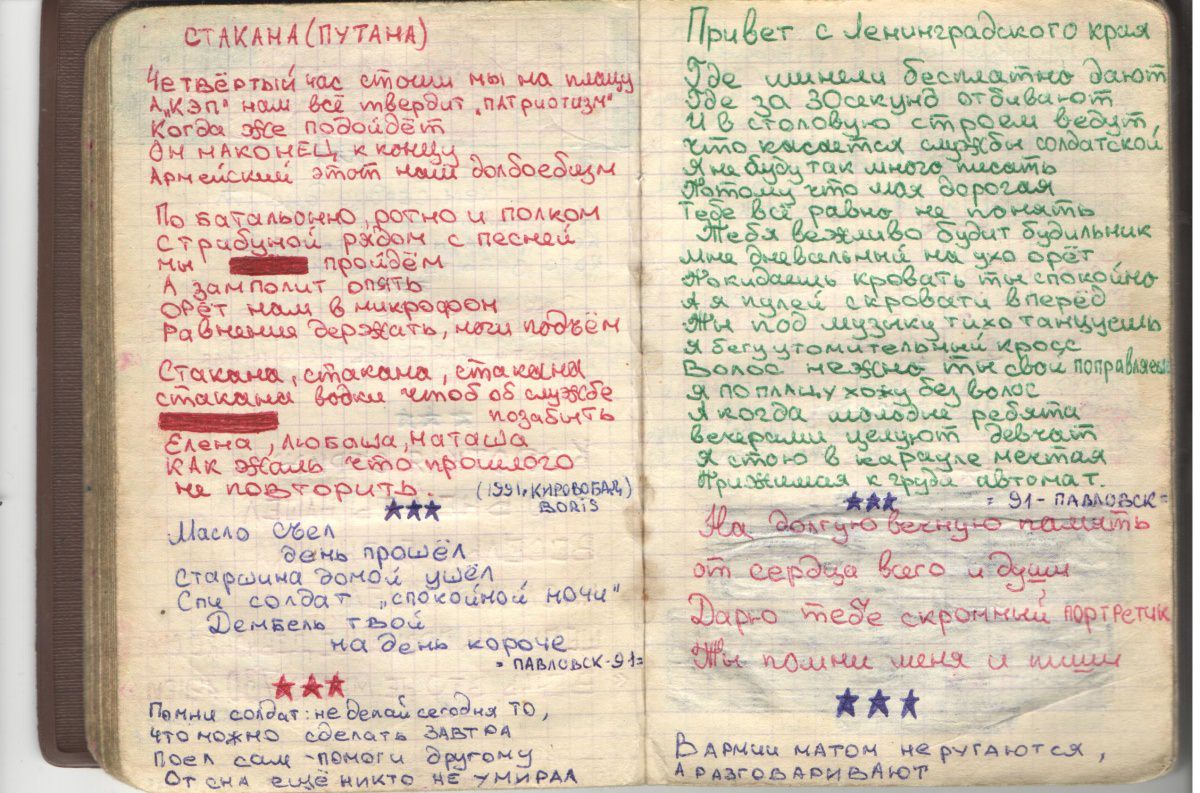 СТАКАНА (ПУТАНА)
Четвёртый час стоим мы на плацу
А „КЭП" нам всё твердит „ПАТРИОТИЗМ"
Когда же подойдёт
Он наконец к концу
Армейский этот наш долбоебизм
По батальонно, ротно и полком
С трибуной рядом с песней
мы пройдём
А замполит опять
орёт нам в микрофон
Равнения держать, ноги подъём
Стакана, стакана, стакана
стакана водки чтоб об службе
позабыть
Елена, Любаша, Наташа
Как жаль что прошлого
не повторить.
(1991, КИРОВОБАД)
BORIS
Масло съел
день прошёл
Старшина домой ушёл
Спи солдат „спокойной ночи"
Дембель твой
на день короче
= ПАВЛОВСК-91=
Помни солдат: не делай сегодня ТО,
что можно сделать ЗАВТРА
Поел сам - помоги другому
От сна ещё никто не умирал
Привет с Ленинградского края
Где шинели бесплатно дают
Где за 30 секунд отбивают
И в столовую строем ведут,
что касается службы солдатской
Я не буду так много писать
Потому что моя дорогая
Тебе всё равно не понять
Тебя вежливо будит будильник
Мне дневальный на ухо орёт
Покидаешь кровать ты спокойно
А я пулей с кровати вперёд
Ты под музыку тихо танцуешь
Я бегу утомительный кросс
Волос нежно ты свой поправляешь
Я по плацу хожу без волос
Я когда молодые ребята
вечерами целуют девчат
Я стою в карауле мечтая
Прижимая к груди автомат.
= 91 - ПАВЛОВСК =
На долгую вечную память
от сердца всего и души
Дарю тебе скромный портретчик
Ты помни меня и пиши
В армии матом не ругаются,
А РАЗГОВАРИВАЮТ